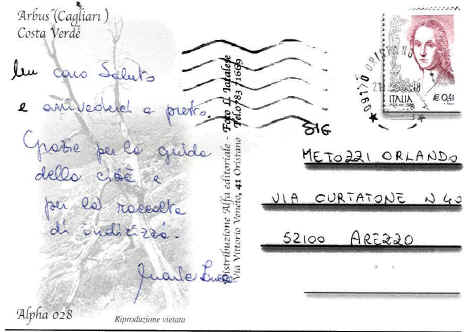 Arbus (Cagliari)
Costa Verde
Un caro saluto
e arrivederci a presto.
Grazie per la guida
della città e
per la raccolta
di indirizzi.
Alpha 028
Riproduzione vietata
Distribuzione Alfa editoriale - Foto
Via Vittorio Veneto, 41 Oristano Tel.0783 71669
ITALIA € 0,41
SIG
METOZZI ORLANDO
VIA CURTATONE N 40
52100 AREZZO